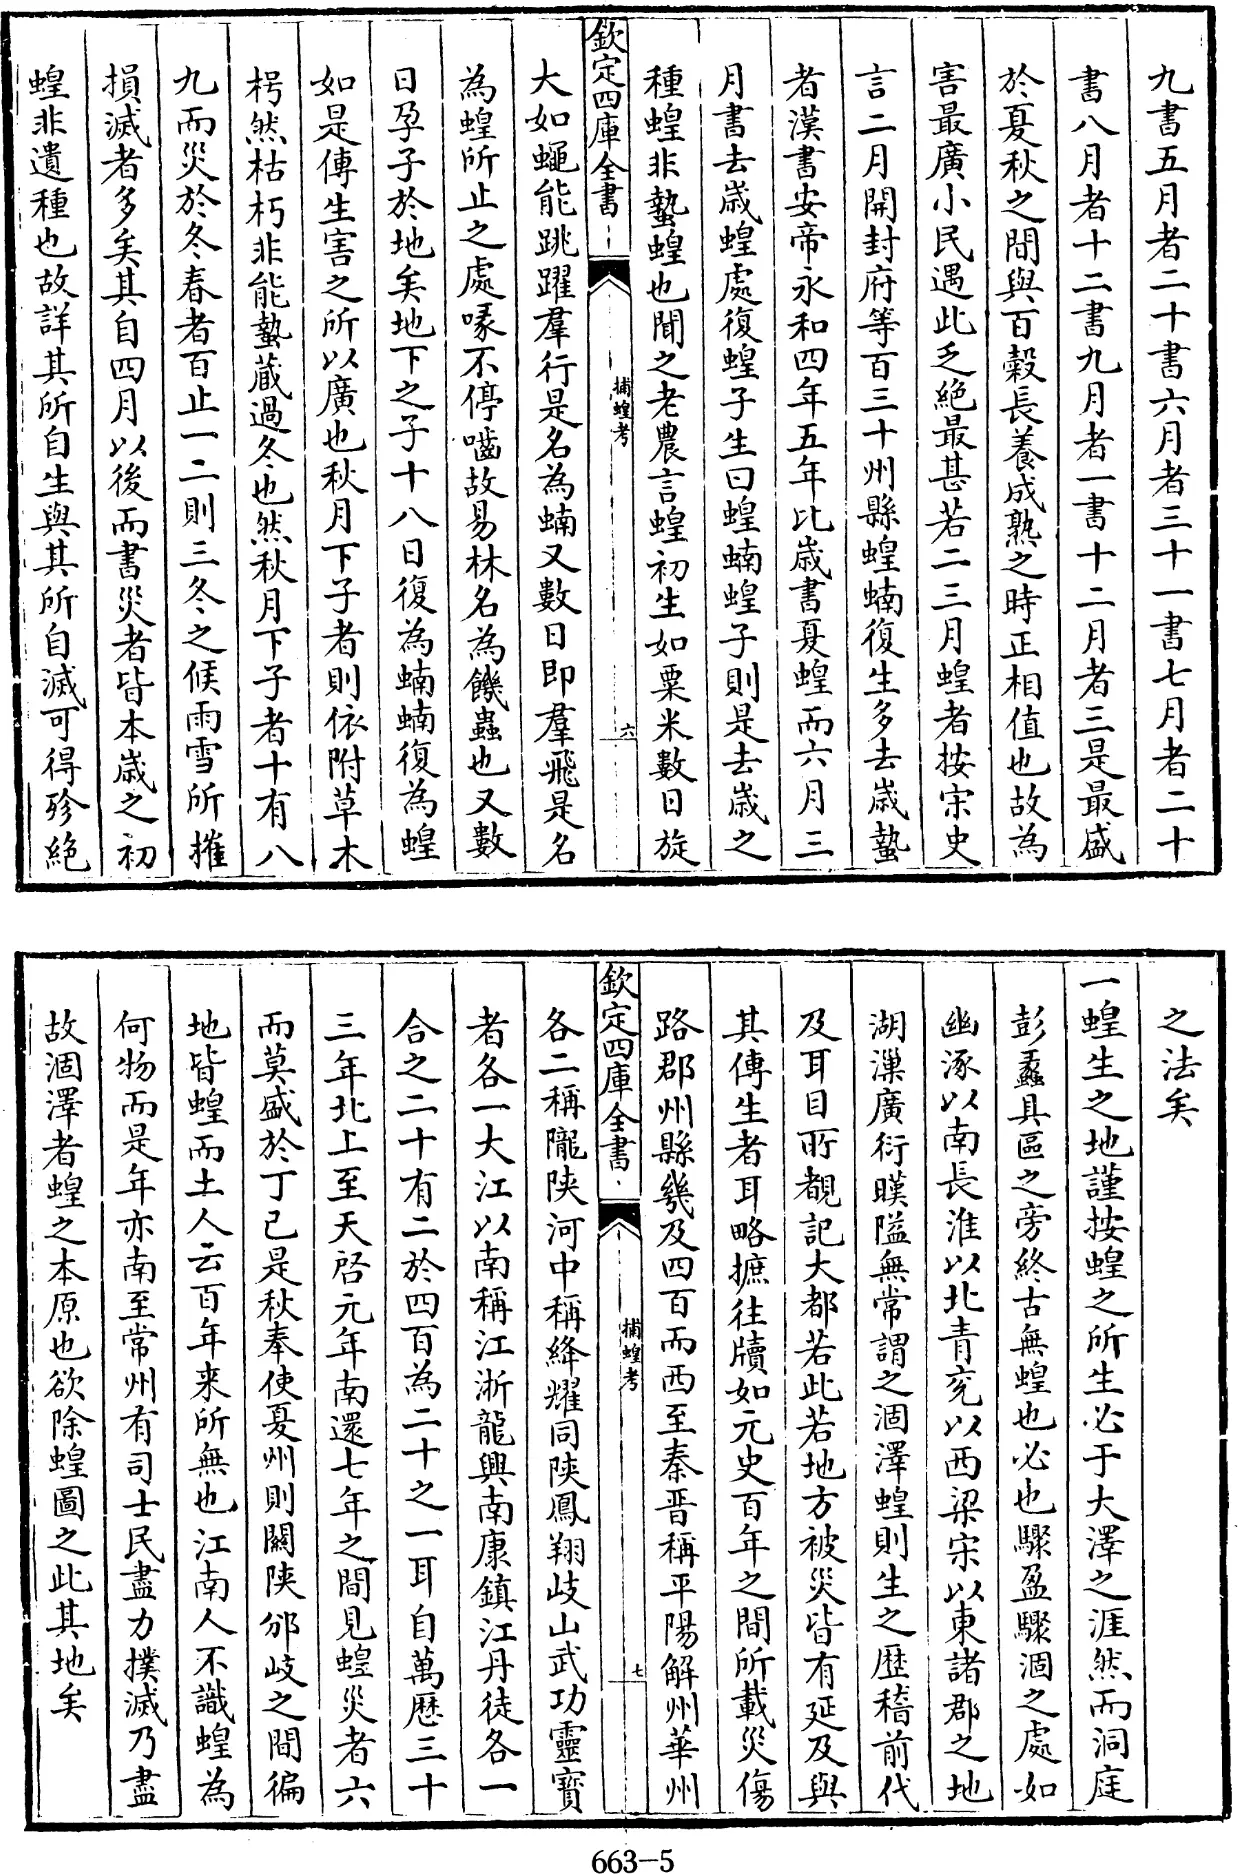 九書五月者二十書六月者三十一書七月者二十
書八月者十二書九月者一書十二月者三是最盛
於夏秋之間與百穀長養成熟之時正相值也故為
害最廣小民遇此乏絶最甚若二三月蝗者按宋史
言二月開封府等百三十州縣蝗蝻復生多去歳蟄
者漢書安帝永和四年五年比歳書夏蝗而六月三
月書去歳蝗處復蝗子生曰蝗蝻蝗子則是去歳之
種蝗非蟄蝗也聞之老農言蝗初生如粟米數日旋
欽定四庫全書
捕蝗考
六
大如蠅能跳躍羣行是名為蝻又數日即羣飛是名
為蝗所止之處喙不停嚙故易林名為饑蟲也又數
日孕子於地矣地下之子十八日復為蝻蝻復為蝗
如是傳生害之所以廣也秋月下子者則依附草木
枵然枯朽非能蟄藏過冬也然秋月下子者十有八
九而災於冬春者百止一二則三冬之候雨雪所摧
損滅者多矣其自四月以後而書災者皆本歳之初
蝗非遺種也故詳其所自生與其所自滅可得殄絶
之法矣
一蝗生之地謹按蝗之所生必于大澤之涯然而洞庭
彭蠡具區之旁終古無蝗也必也驟盈驟涸之處如
幽涿以南長淮以北青兖以西梁宋以東諸郡之地
湖漅廣衍暵隘無常謂之涸澤蝗則生之歴稽前代
及耳目所覩記大都若此若地方被災皆有延及與
其傳生者耳略摭往牘如元史百年之間所載災傷
路郡州縣幾及四百而西至秦晋稱平陽解州華州
欽定四庫全書
捕蝗考
七
各二稱隴陝河中稱絳耀同陝鳳翔岐山武功靈寳
者各一大江以南稱江浙龍興南康鎮江丹徒各一
合之二十有二於四百為二十之一耳自萬歴三十
三年北上至天啓元年南還七年之間見蝗災者六
而莫盛於丁已是秋奉使夏州則關陝邠岐之間徧
地皆蝗而土人云百年来所無也江南人不識蝗為
何物而是年亦南至常州有司士民盡力撲滅乃盡
故涸澤者蝗之本原也欲除蝗圖之此其地矣
663-5